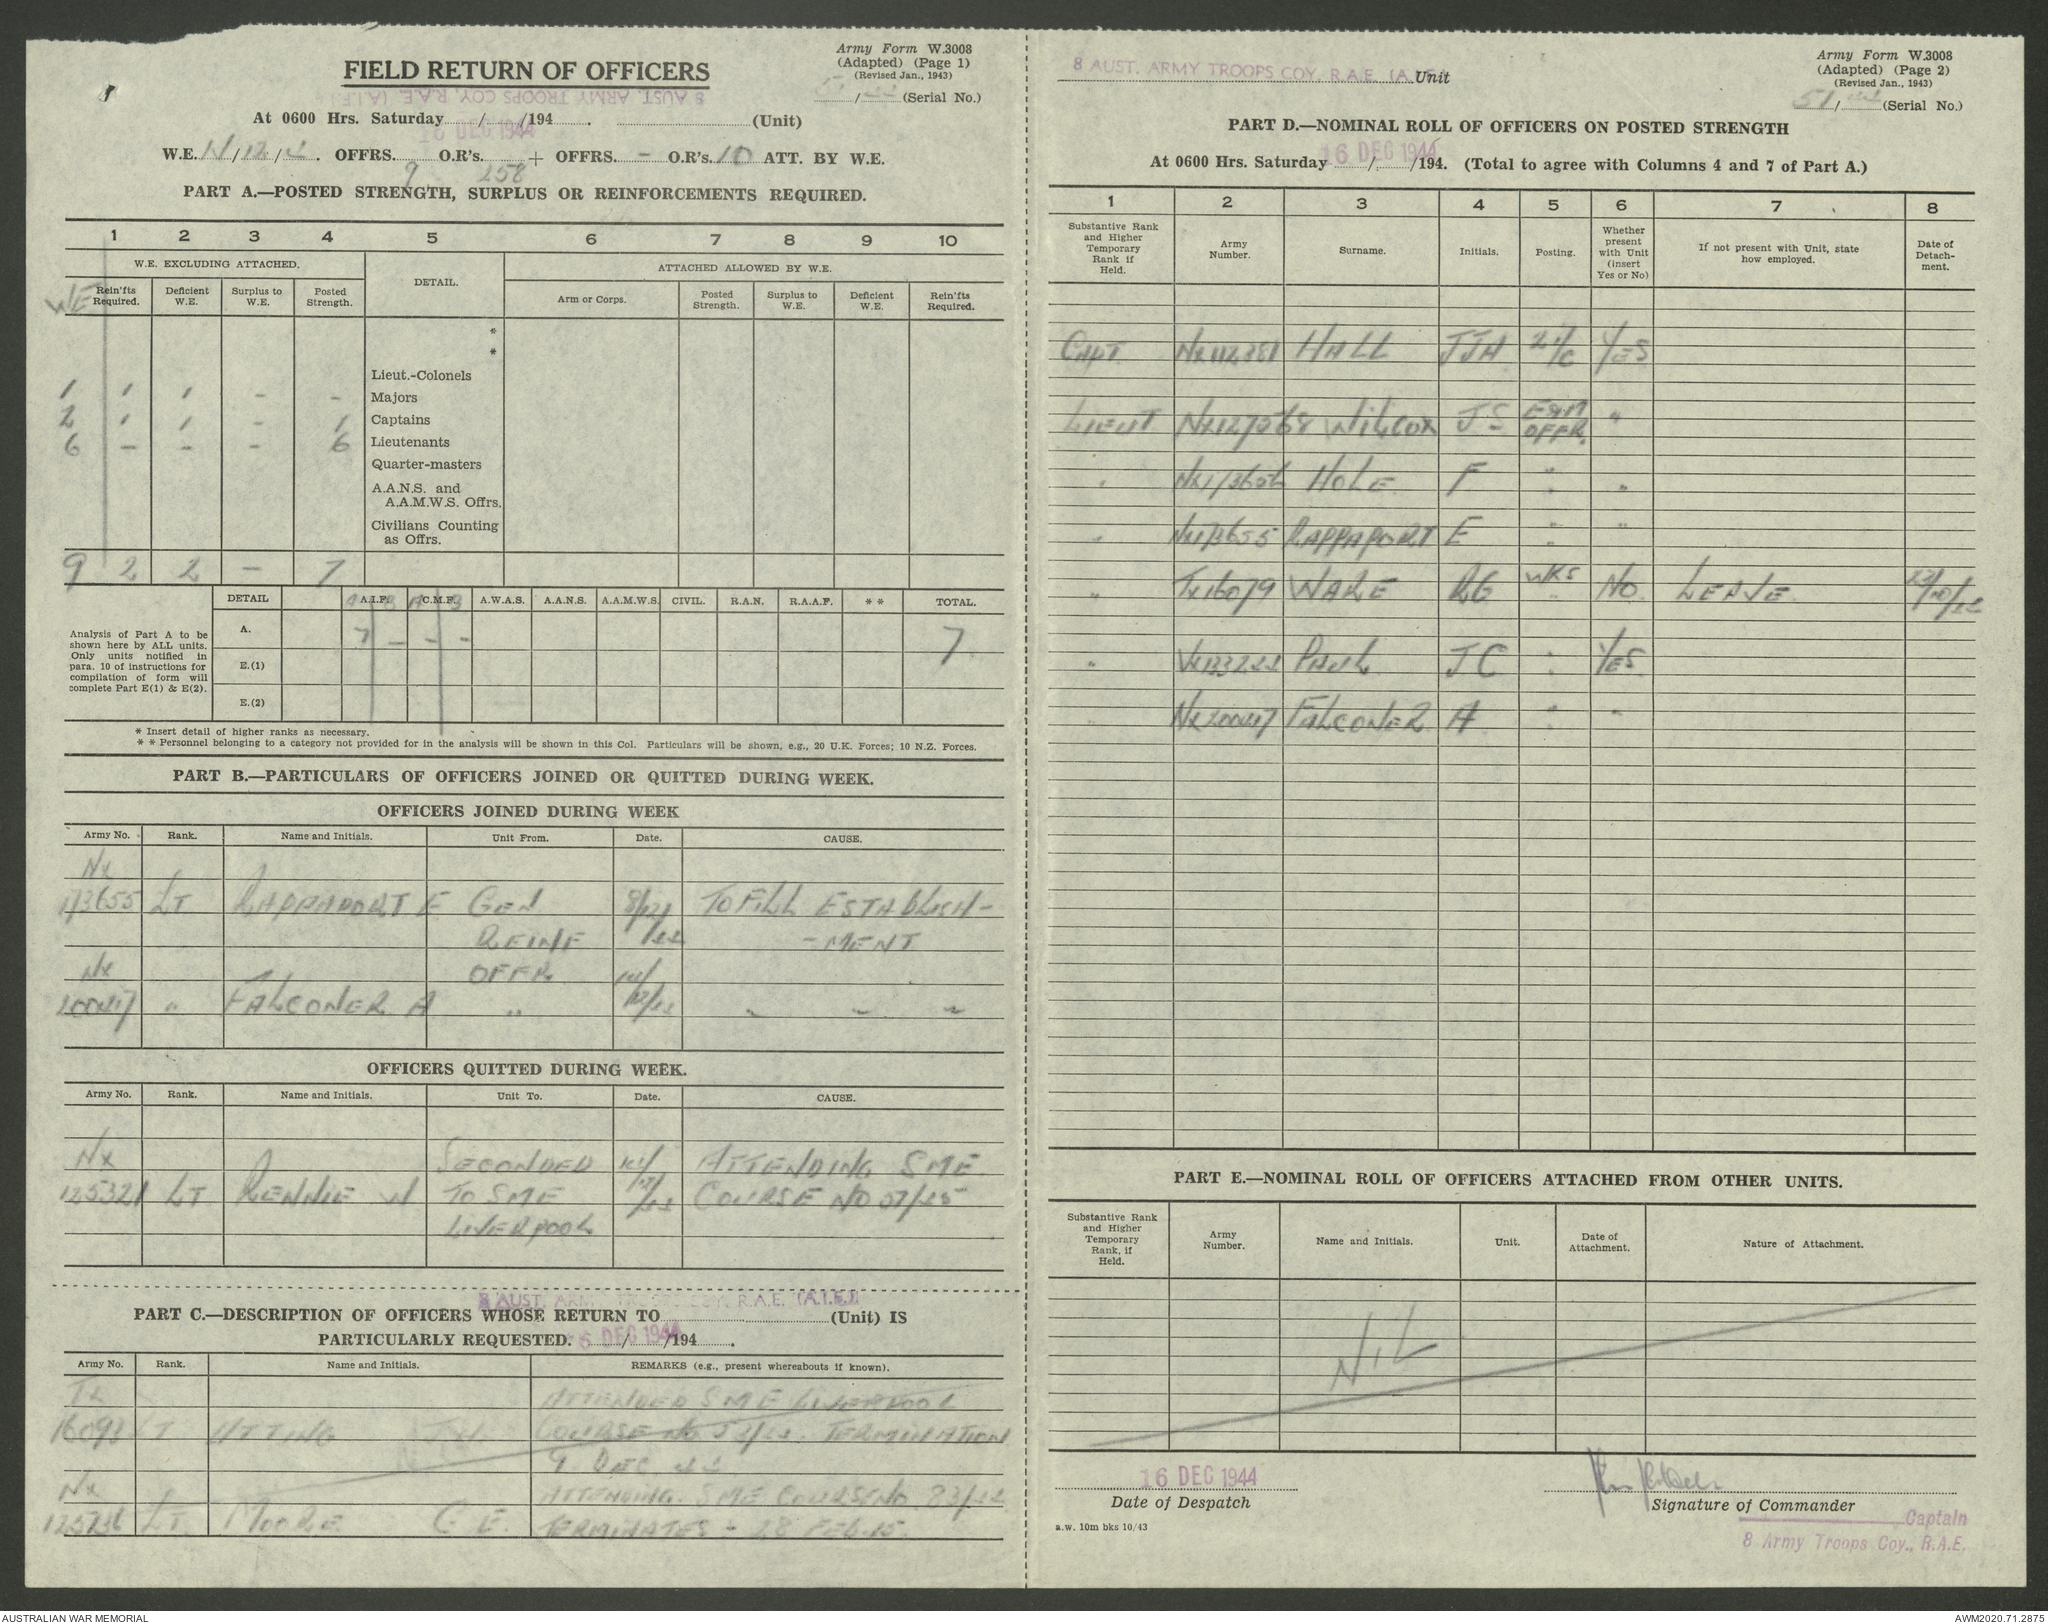 Army Form W.3008
(Adapted) (Page 1)
(Revised Jan., 1943)
FIELD RETURN OF OFFICERS
8 AUST. ARMY TROOPS COY. R.A.E. (A.I.F.)
/ (Serial No.)
At 0600 Hrs. Saturday / /194 . (Unit)
16 DEC 1944
W.E. / / . OFFRS. 9 O.R's. 258 + OFFRS. - O.R's. 10 ATT. BY W.E.
PART A.—POSTED STRENGTH, SURPLUS OR REINFORCEMENTS REQUIRED.
1 2 3 4 5 6 7 8 9 10
W.E. EXCLUDING ATTACHED. DETAIL. ATTACHED ALLOWED BY W.E.
WE Rein'fts Required. Deficient W.E. Surplus to W.E. Posted Strength. Arm or Corps. Posted Strength. Surplus to W.E. Deficient W.E. Rein'fts Required.
*
*
Lieut.-Colonels
1 1 1 - - Majors
2 1 1 - 1 Captains
6 - - - 6 Lieutenants
Quarter-masters
A.A.N.S. and
A.A.M.W.S. Offrs.
Civilians Counting
as Offrs.
9 2 2 - 7
DETAIL A.I.F. C.M.F. A.W.A.S. A.A.N.S. A.A.M.W.S. CIVIL. R.A.N. R.A.A.F. * * TOTAL.
Analysis of Part A to be
shown here by ALL units.
Only units notified in
para. 10 of instructions for
compilation of form will
complete Part E(1) & E(2).
A. 7 - - - 7
E.(1)
E.(2)
* Insert detail of higher ranks as necessary.
* * Personnel belonging to a category not provided for in the analysis will be shown in this Col. Particulars will be shown, e.g., 20 U.K. Forces; 10 N.Z. Forces.
PART B.—PARTICULARS OF OFFICERS JOINED OR QUITTED DURING WEEK.
OFFICERS JOINED DURING WEEK
Army No. Rank. Name and Initials. Unit From. Date. CAUSE.
NX
173655 LT RAPPAPORT E GEN 8/12/ TO FILL ESTABLISH-
REINF /44 -MENT
NX OFFR 14/
200417 " FALCONER A " 12/44 " " "
OFFICERS QUITTED DURING WEEK.
Army No. Rank. Name and Initials. Unit To. Date. CAUSE.
NX SECONDED ATTENDING SME
125321 LT RENNIE W TO SME /44 COURSE NO
LIVERPOOL
8 AUST. ARMY TROOPS COY. R.A.E. (A.I.F.)
PART C.—DESCRIPTION OF OFFICERS WHOSE RETURN TO (Unit) IS
PARTICULARLY REQUESTED. / /194 .
16 DEC 1944
Army No. Rank. Name and Initials. REMARKS (e.g., present whereabouts if known).
TX ATTENDED SME LIVERPOOL
LT UTTING COURSE NO TERMINATION
9 DEC 44
NX ATTENDING SME COURSE NO 83/44
LT MOORE C E. TERMINATES - 28 FEB 45.
8 AUST. ARMY TROOPS COY. R.A.E. (A.I.F.) Unit
Army Form W.3008
(Adapted) (Page 2)
(Revised Jan., 1943)
51/44 (Serial No.)
PART D.—NOMINAL ROLL OF OFFICERS ON POSTED STRENGTH
At 0600 Hrs. Saturday / /194. (Total to agree with Columns 4 and 7 of Part A.)
16 DEC 1944
1 2 3 4 5 6 7 8
Substantive Rank and Higher Temporary Rank if Held. Army Number. Surname. Initials. Posting. Whether present with Unit (insert Yes or No) If not present with Unit, state how employed. Date of Detachment.
CAPT NX112381 HALL JJH 2I/C YES
LIEUT NX127568 WILCOX JS EQPT OFFR. "
" HOLE F " "
" NX173655 RAPPAPORT E " "
" TX16079 WARE RG WKS NO LEAVE
" PAUL JC " YES
" NX200417 FALCONER A " "
PART E.—NOMINAL ROLL OF OFFICERS ATTACHED FROM OTHER UNITS.
Substantive Rank and Higher Temporary Rank, if Held. Army Number. Name and Initials. Unit. Date of Attachment. Nature of Attachment.
NIL
16 DEC 1944
Date of Despatch
Signature of Commander
a.w. 10m bks 10/43
Captain
8 Army Troops Coy., R.A.E.
AUSTRALIAN WAR MEMORIAL
AWM2020.71.2875